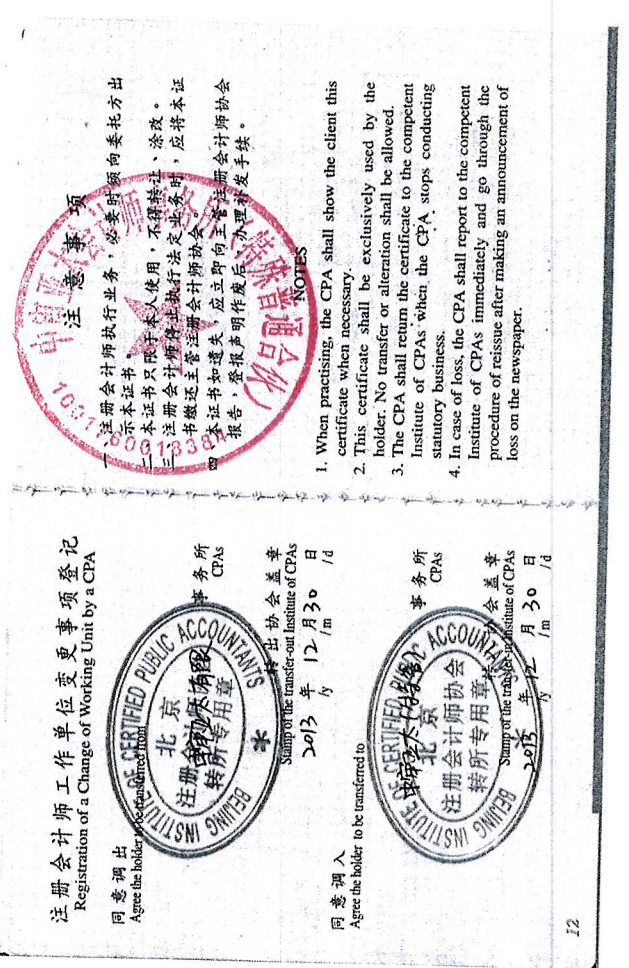 注册会计师工作单位变更事项登记
Registration of a Change of Working Unit by a CPA
同意调出
Agree the holder to be transferred from
中审亚太有限
事务所
CPAs
BEIJING INSTITUTE OF CERTIFIED PUBLIC ACCOUNTANTS
北京
注册会计师协会
转所专用章
转出协会盖章
Stamp of the transfer-out Institute of CPAs
2013 年 12 月 30 日
/y /m /d
同意调入
Agree the holder to be transferred to
中审亚太
事务所
CPAs
BEIJING INSTITUTE OF CERTIFIED PUBLIC ACCOUNTANTS
北京
注册会计师协会
转所专用章
转入协会盖章
Stamp of the transfer-in Institute of CPAs
2013 年 12 月 30 日
/y /m /d
12
注意事项
一、注册会计师执行业务，必要时须向委托方出
示本证书。
二、本证书只限于本人使用，不得转让、涂改。
三、注册会计师停止执行法定业务时，应将本证
书缴还主管注册会计师协会。
四、本证书如遗失，应立即向主管注册会计师协会
报告，登报声明作废后，办理补发手续。
中审亚太会计师事务所(特殊普通合伙)
NOTES
1. When practising, the CPA shall show the client this
certificate when necessary.
2. This certificate shall be exclusively used by the
holder. No transfer or alteration shall be allowed.
3. The CPA shall return the certificate to the competent
Institute of CPAs when the CPA stops conducting
statutory business.
4. In case of loss, the CPA shall report to the competent
Institute of CPAs immediately and go through the
procedure of reissue after making an announcement of
loss on the newspaper.